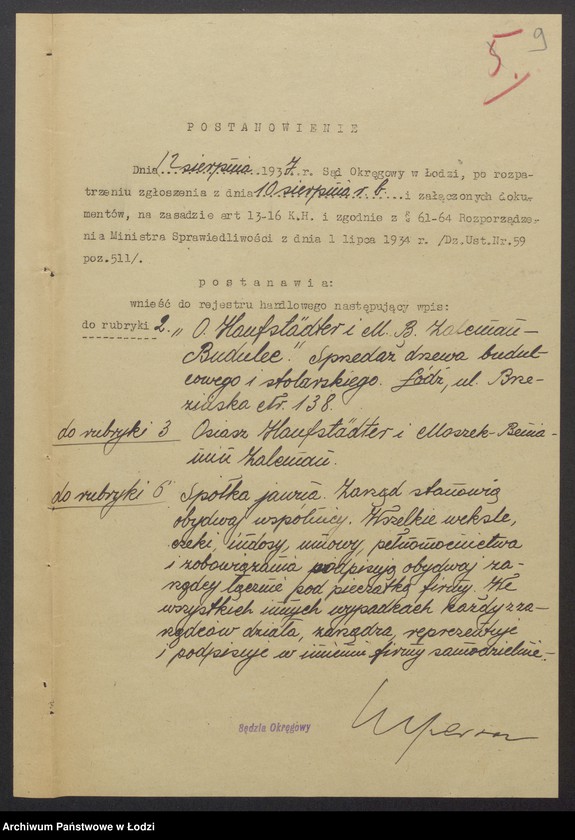 5.
9
POSTANOWIENIE
Dnia 12 sierpnia 1937 r. Sąd Okręgowy w Łodzi, po rozpa-
trzeniu zgłoszenia z dnia 10 sierpnia r. b. i załączonych doku-
mentów, na zasadzie art 13-16 K.H. i zgodnie z § 61-64 Rozporządze-
nia Ministra Sprawiedliwości z dnia 1 lipca 1934 r. /Dz.Ust.Nr.59
poz.511/.
postanawia:
wnieść do rejestru handlowego następujący wpis:
do rubryki 2. „O. Haufstädter i M. B. Zalcman-
Budulec." Sprzedaż drzewa budul-
cowego i stolarskiego. Łódź, ul. Brze-
zińska Nr. 138.
do rubryki 3 Osiasz Haufstädter i Moszek-Benia-
min Zalcman.
do rubryki 6 Spółka jawna. Zarząd stanowią
obydwaj wspólnicy. Wszelkie weksle,
czeki, indosy, umowy, pełnomocnictwa
i zobowiązania podpisują obydwaj za-
rządcy łącznie pod pieczątką firmy. We
wszystkich innych wypadkach każdy z za-
rządców działa, zarządza, reprezentuje
i podpisuje w imieniu firmy samodzielnie.-
Sędzia Okręgowy
Archiwum Państwowe w Łodzi